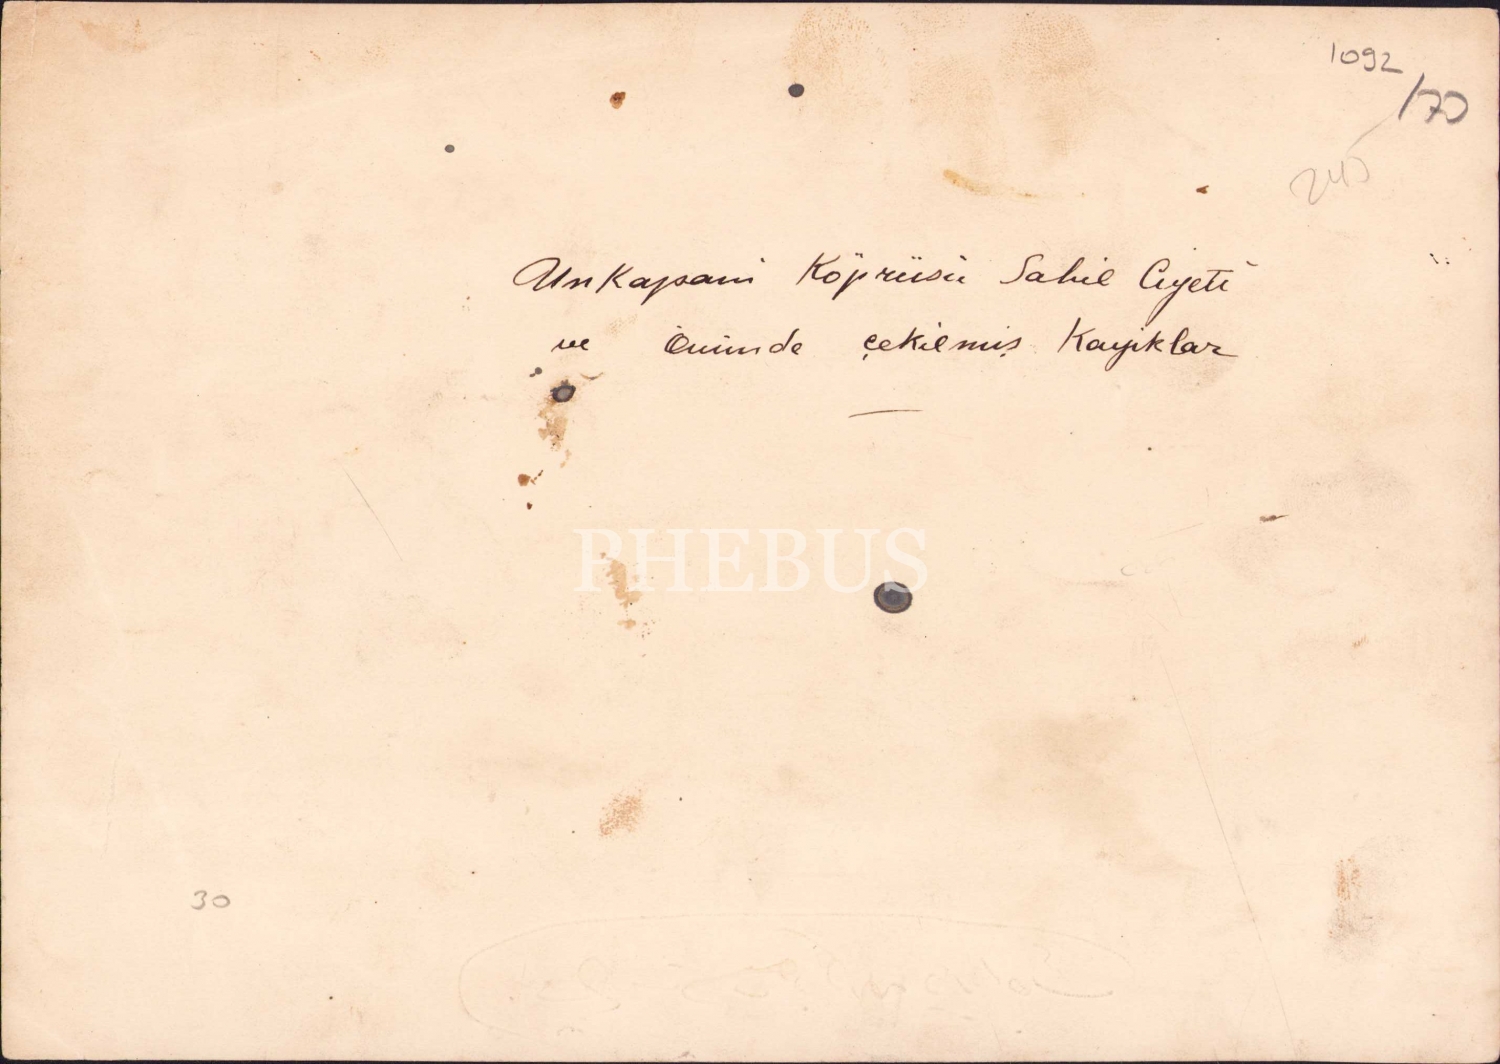 1092
/70
245
Unkapani Köprüsü Sahil Ciyeti
ve önünde çekilmiş Kayiklar
PHEBUS
30